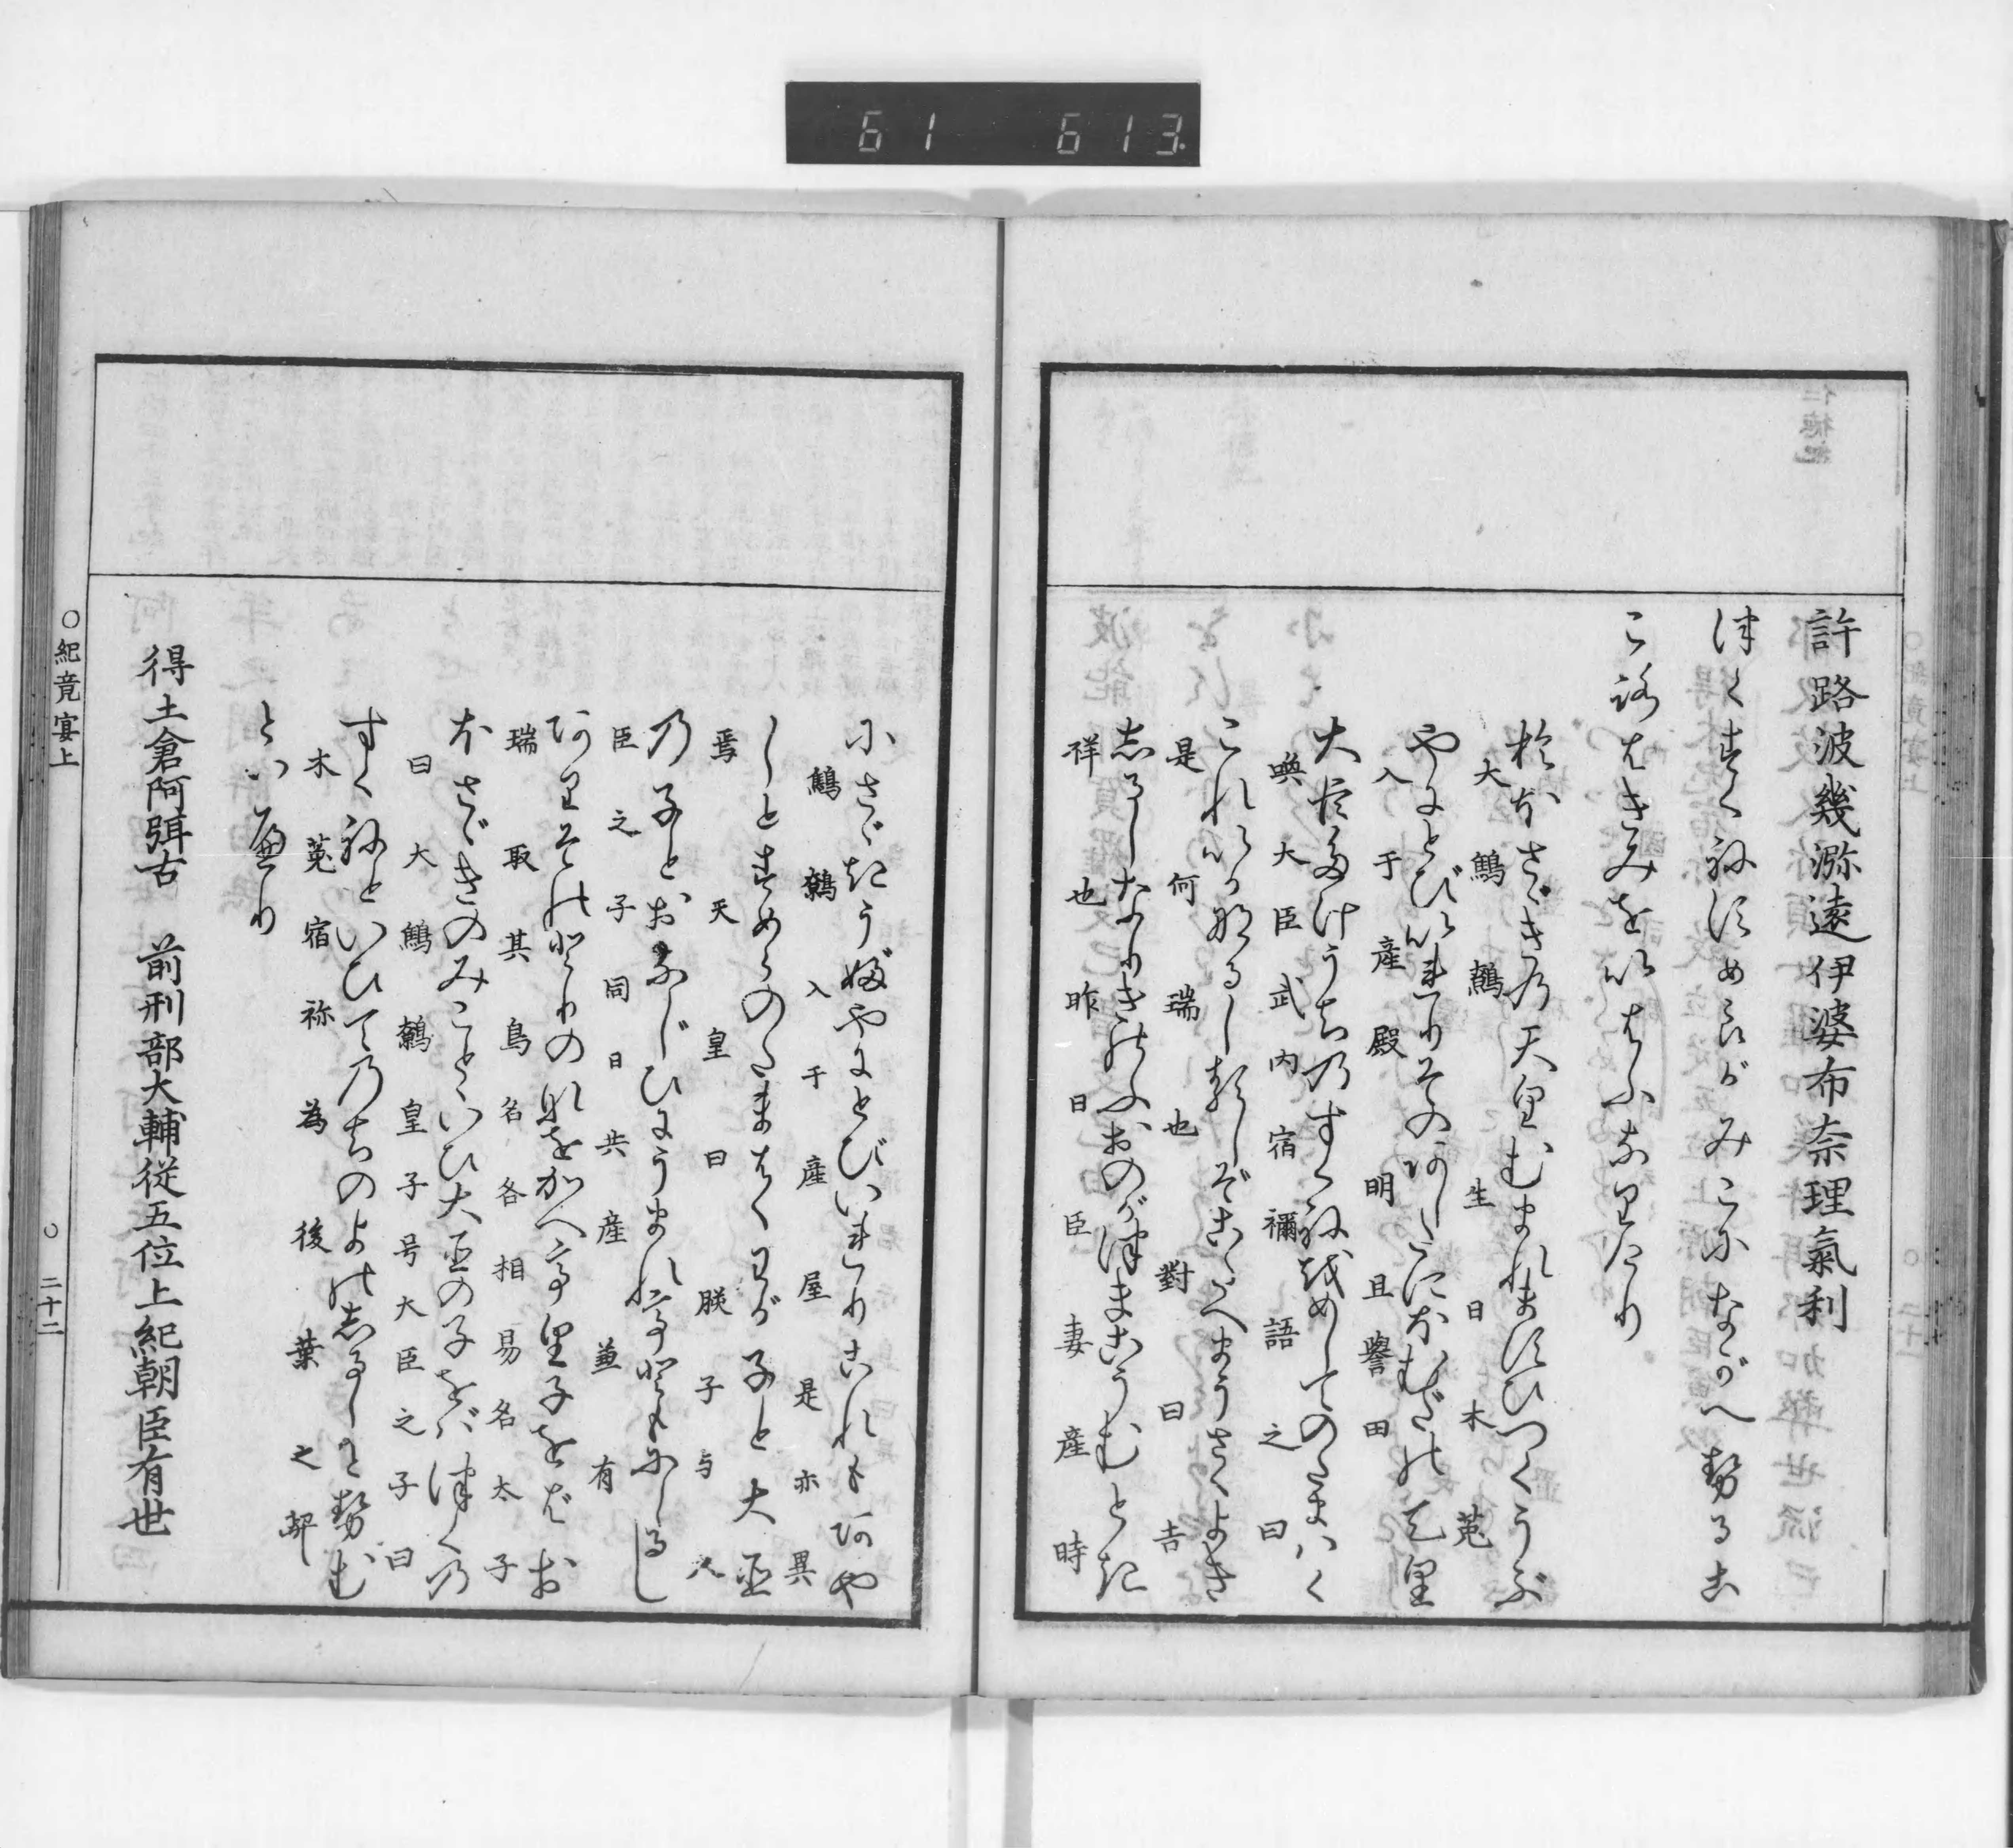 61 613
許路波幾瀰遠伊婆布奈理氣利
津くすくねすめらがみこになかへ勢るこ
こ路はきみをいはふなりけり
於ほさゞき乃天皇むまれますひつくうぶ
大鷦鷯生日木菟
やにとびいれりそのあしたにほむだの天皇
入于産殿明旦譽田
大臣たけうち乃すくねをめしてのたまはく
喚大臣武内宿禰語之曰
これいかなるしるしぞこたへまうさくよき
是何瑞也對曰吉
志るしなりきのふおのが津まこうむとき
祥也昨日臣妻産時
にさゞきうぶやにとびいれりこれもあや
鷦鷯入于産屋是亦異
しとすめらのたまはくわが子と大臣
焉天皇曰朕子与人
乃子とおなじひにうまれてともにしるし
臣之子同日共産兼有
ありその登りの名をかへて皇子をばお
瑞取其鳥名各相易名太子
ほさゞきのみことゝいひ大臣の子をば津く乃
曰大鷦鷯皇子号大臣之子曰
すくねといひて乃ちのよの志るしと勢む
木菟宿祢為後葉之契
といへり
得土倉阿弭古 前刑部大輔従五位上紀朝臣有世
○紀竟宴上 ○二十二